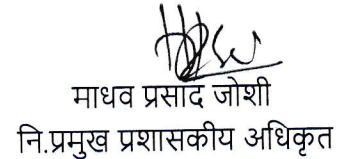 माधव प्रसाद जोशी
नि.प्रमुख प्रशासकीय अधिकृत